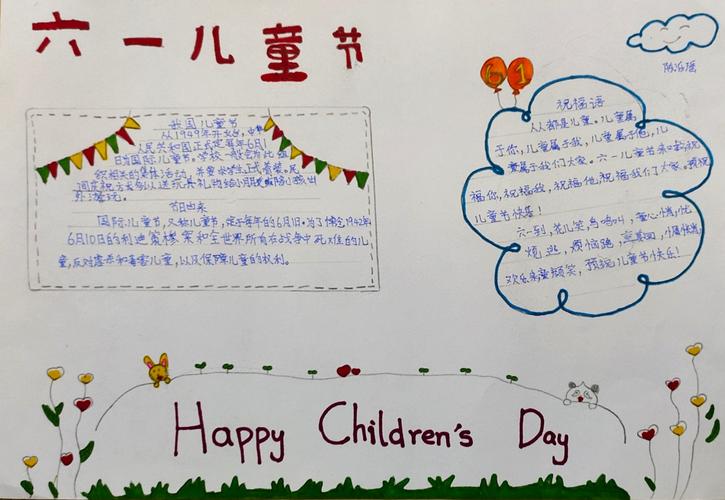 六一儿童节
61
我国儿童节
从1949年开始，中华
人民共和国正式定每年6月1
日为国际儿童节。学校一般会为此组
织相关的集体活动，并要求学生正式着装。民
间庆祝方式
外
节日由来
国际儿童节，又称儿童节，定于每年的6月1日。为了悼念1942年
6月10日的利迪策惨案和全世界所有在战争中死难的儿
童，反对虐杀和毒害儿童，以及保障儿童的权利。
祝福语
人人都是儿童。儿童属
于你，儿童属于我，儿童属于他，儿
童属于我们大家。六一儿童节来
福你，祝福我，祝福他，祝福我们大家。预祝
儿童节快乐！
六一到，花儿笑，鸟鸣叫，童心
烦逃，烦恼跑
欢乐 笑，预祝儿童节快乐！
Happy Children's Day